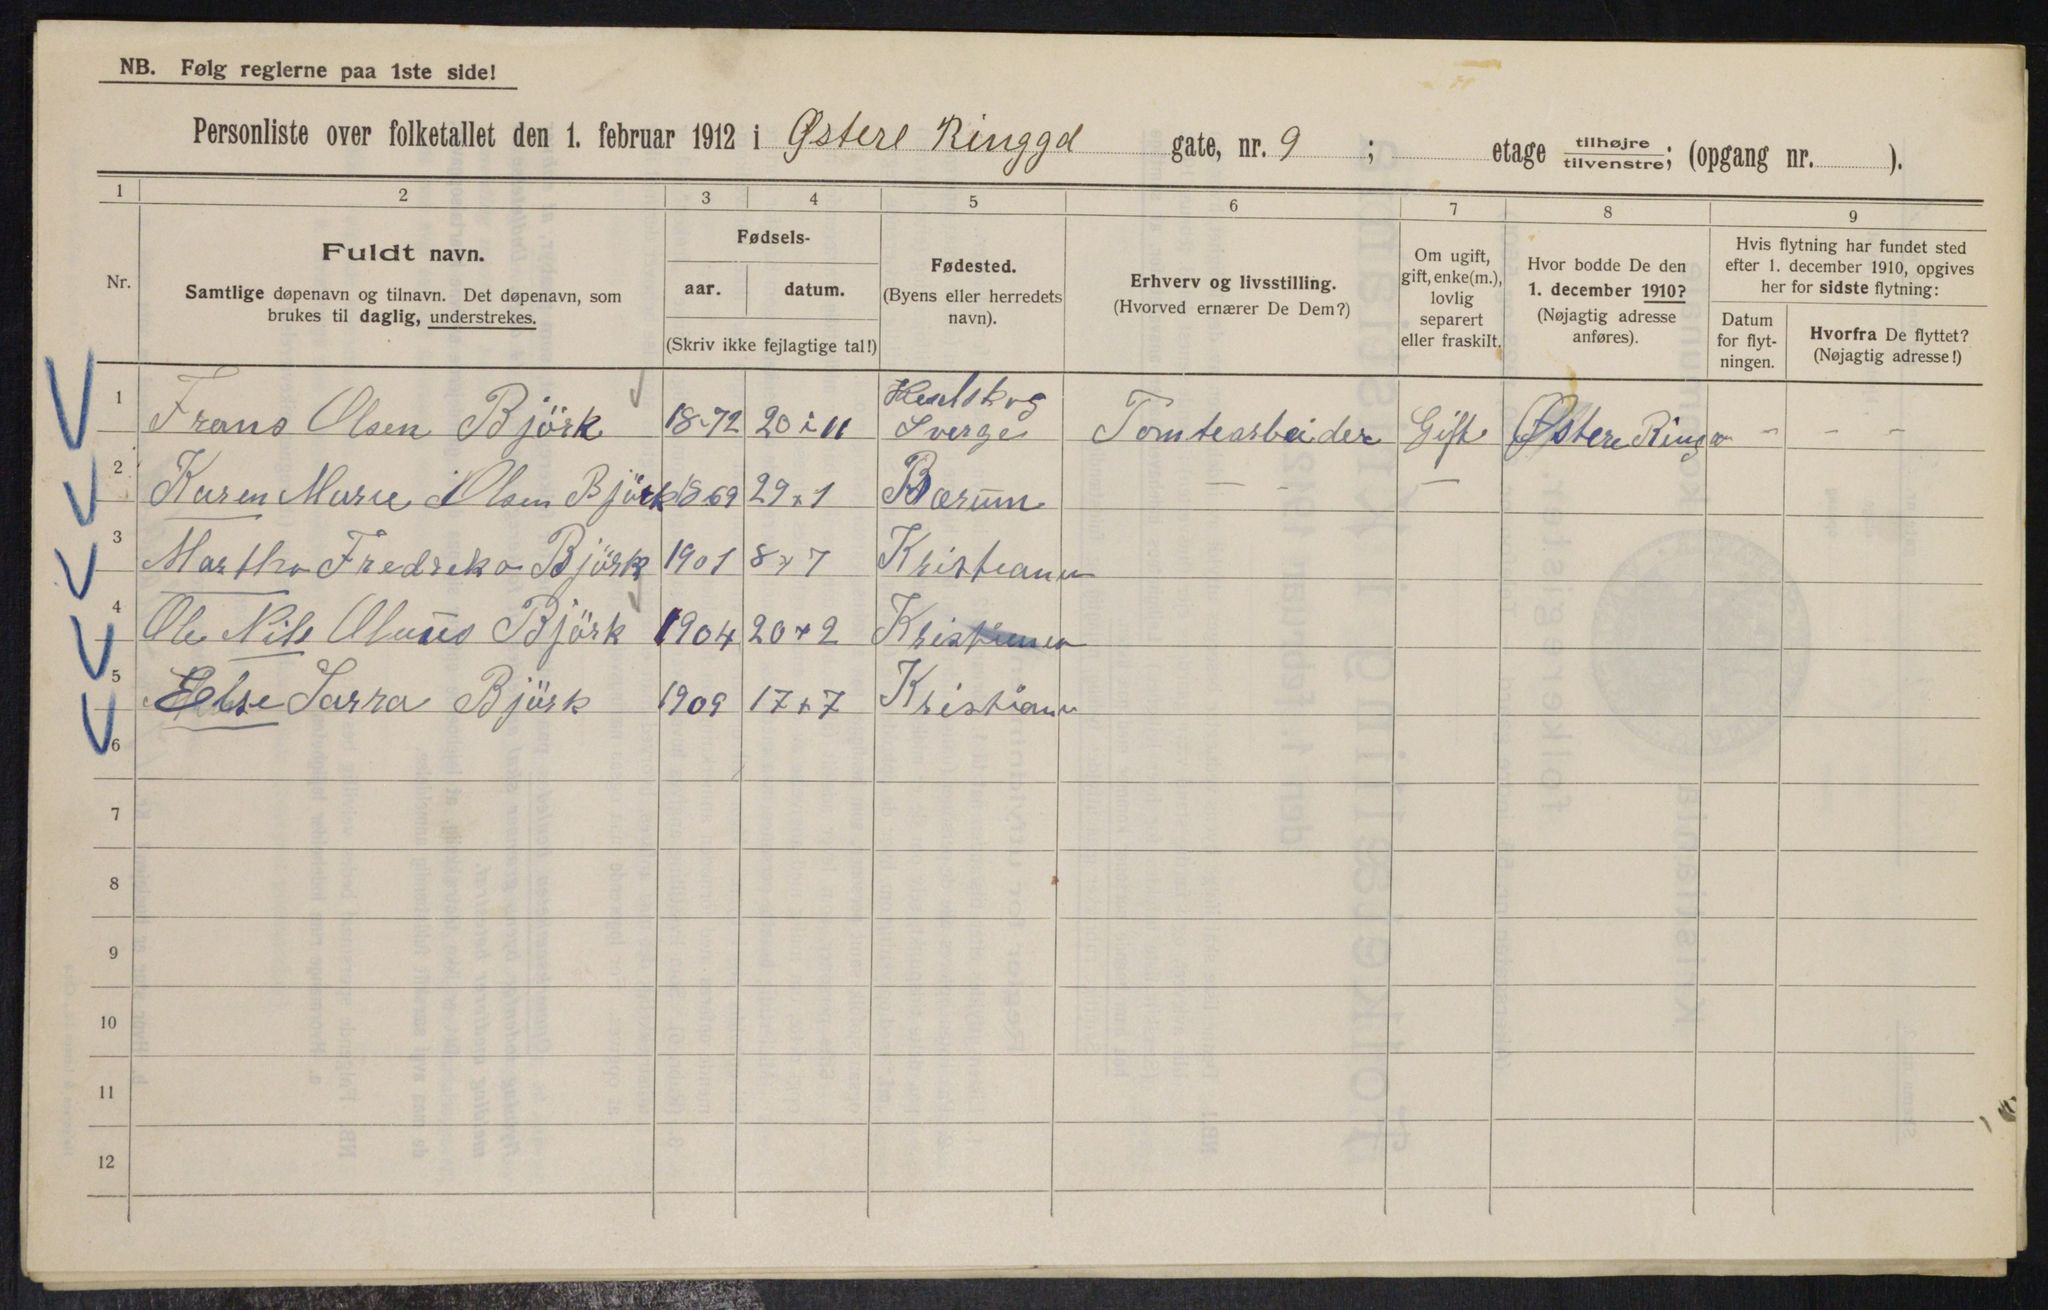 NB. Følg reglerne paa 1ste side!
Personliste over folketallet den 1. februar 1912 i Østere Ringgd gate, nr. 9 ; etage tilhøjre tilvenstre; (opgang nr. ).
1 2 3 4 5 6 7 8 9
Nr.
Fuldt navn.
Samtlige døpenavn og tilnavn. Det døpenavn, som
brukes til daglig, understrekes.
Fødsels-
aar. datum.
(Skriv ikke fejlagtige tal!)
Fødested.
(Byens eller herredets
navn).
Erhverv og livsstilling.
(Hvorved ernærer De Dem?)
Om ugift,
gift, enke(m.),
lovlig
separert
eller fraskilt.
Hvor bodde De den
1. december 1910?
(Nøjagtig adresse
anføres).
Hvis flytning har fundet sted
efter 1. december 1910, opgives
her for sidste flytning:
Datum
for flyt-
ningen.
Hvorfra De flyttet?
(Nøjagtig adresse!)
1 Frans Olsen Björk 1872 20 i 11 Sverge Tomtearbeider Gift Østere Ring - - -
2 Karen Marie Olsen Björk 1869 29 x 1 Bærum - - - -
3 Martha Fredreka Björk 1901 8 x 7 Kristiania
4 Ole Nils Olauus Björk 1904 20 x 2 Kristiania
5 Else Sarra Björk 1909 17 x 7 Kristiania
6
7
8
9
10
11
12